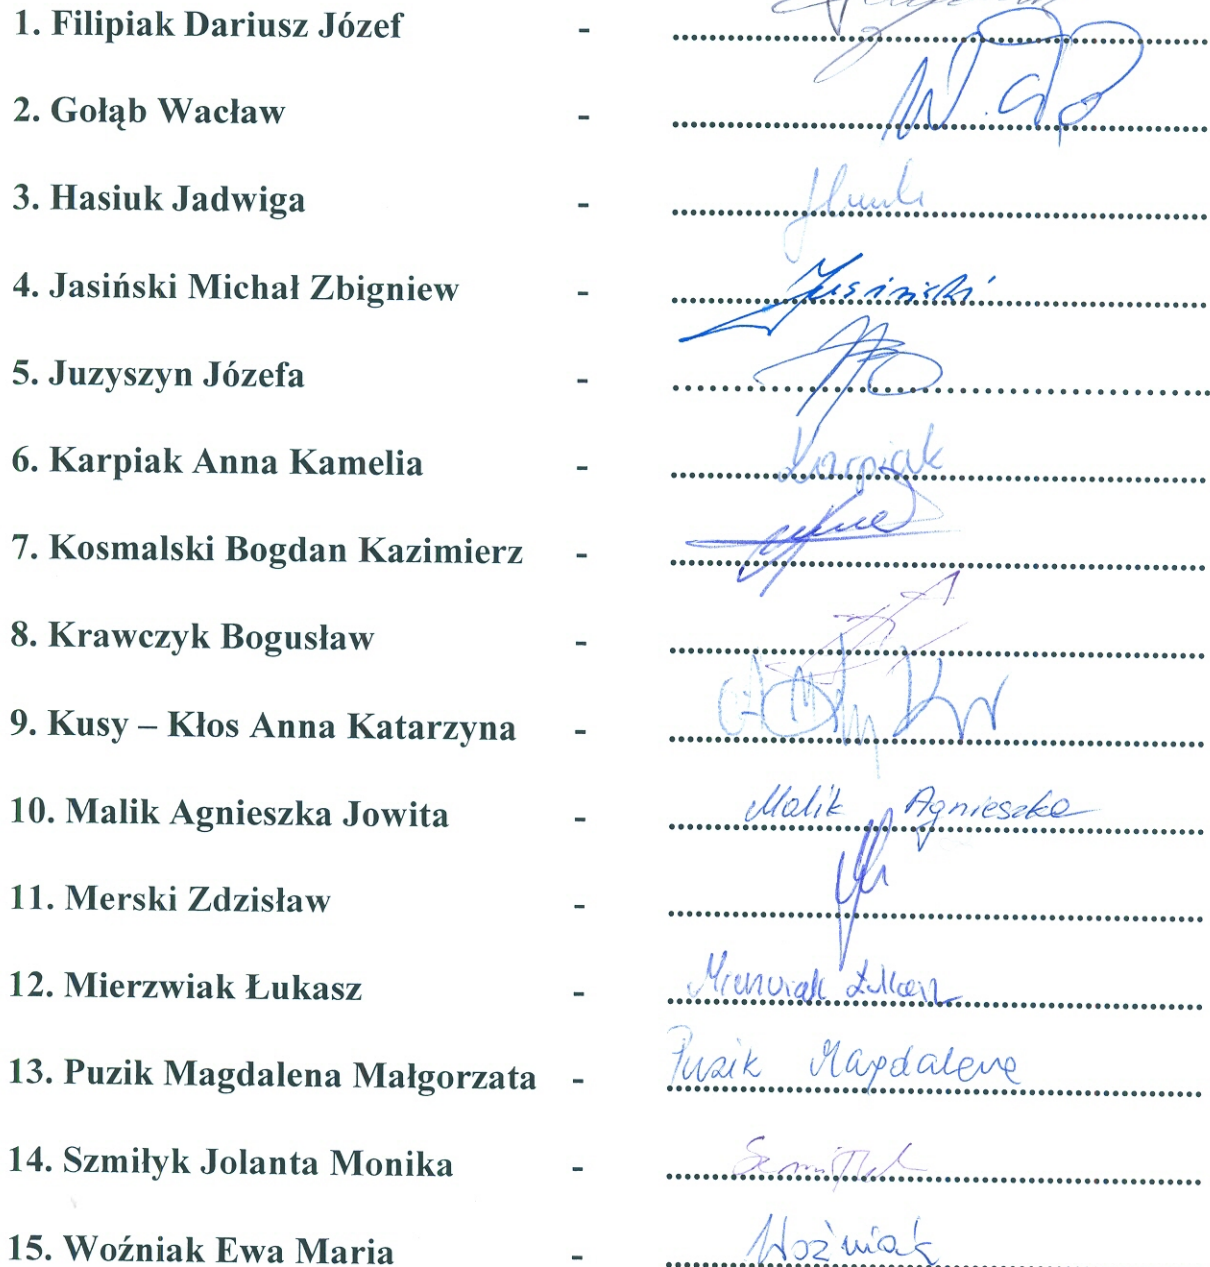 1. Filipiak Dariusz Józef - ........................
2. Gołąb Wacław - ........................
3. Hasiuk Jadwiga - ........................
4. Jasiński Michał Zbigniew - ........................ Jasiński
5. Juzyszyn Józefa - ........................
6. Karpiak Anna Kamelia - ........................ Karpiak
7. Kosmalski Bogdan Kazimierz - ........................
8. Krawczyk Bogusław - ........................
9. Kusy – Kłos Anna Katarzyna - ........................
10. Malik Agnieszka Jowita - ........................ Malik Agnieszka
11. Merski Zdzisław - ........................
12. Mierzwiak Łukasz - ........................ Mierzwiak Łukasz
13. Puzik Magdalena Małgorzata - ........................ Puzik Magdalena
14. Szmiłyk Jolanta Monika - ........................
15. Woźniak Ewa Maria - ........................ Woźniak